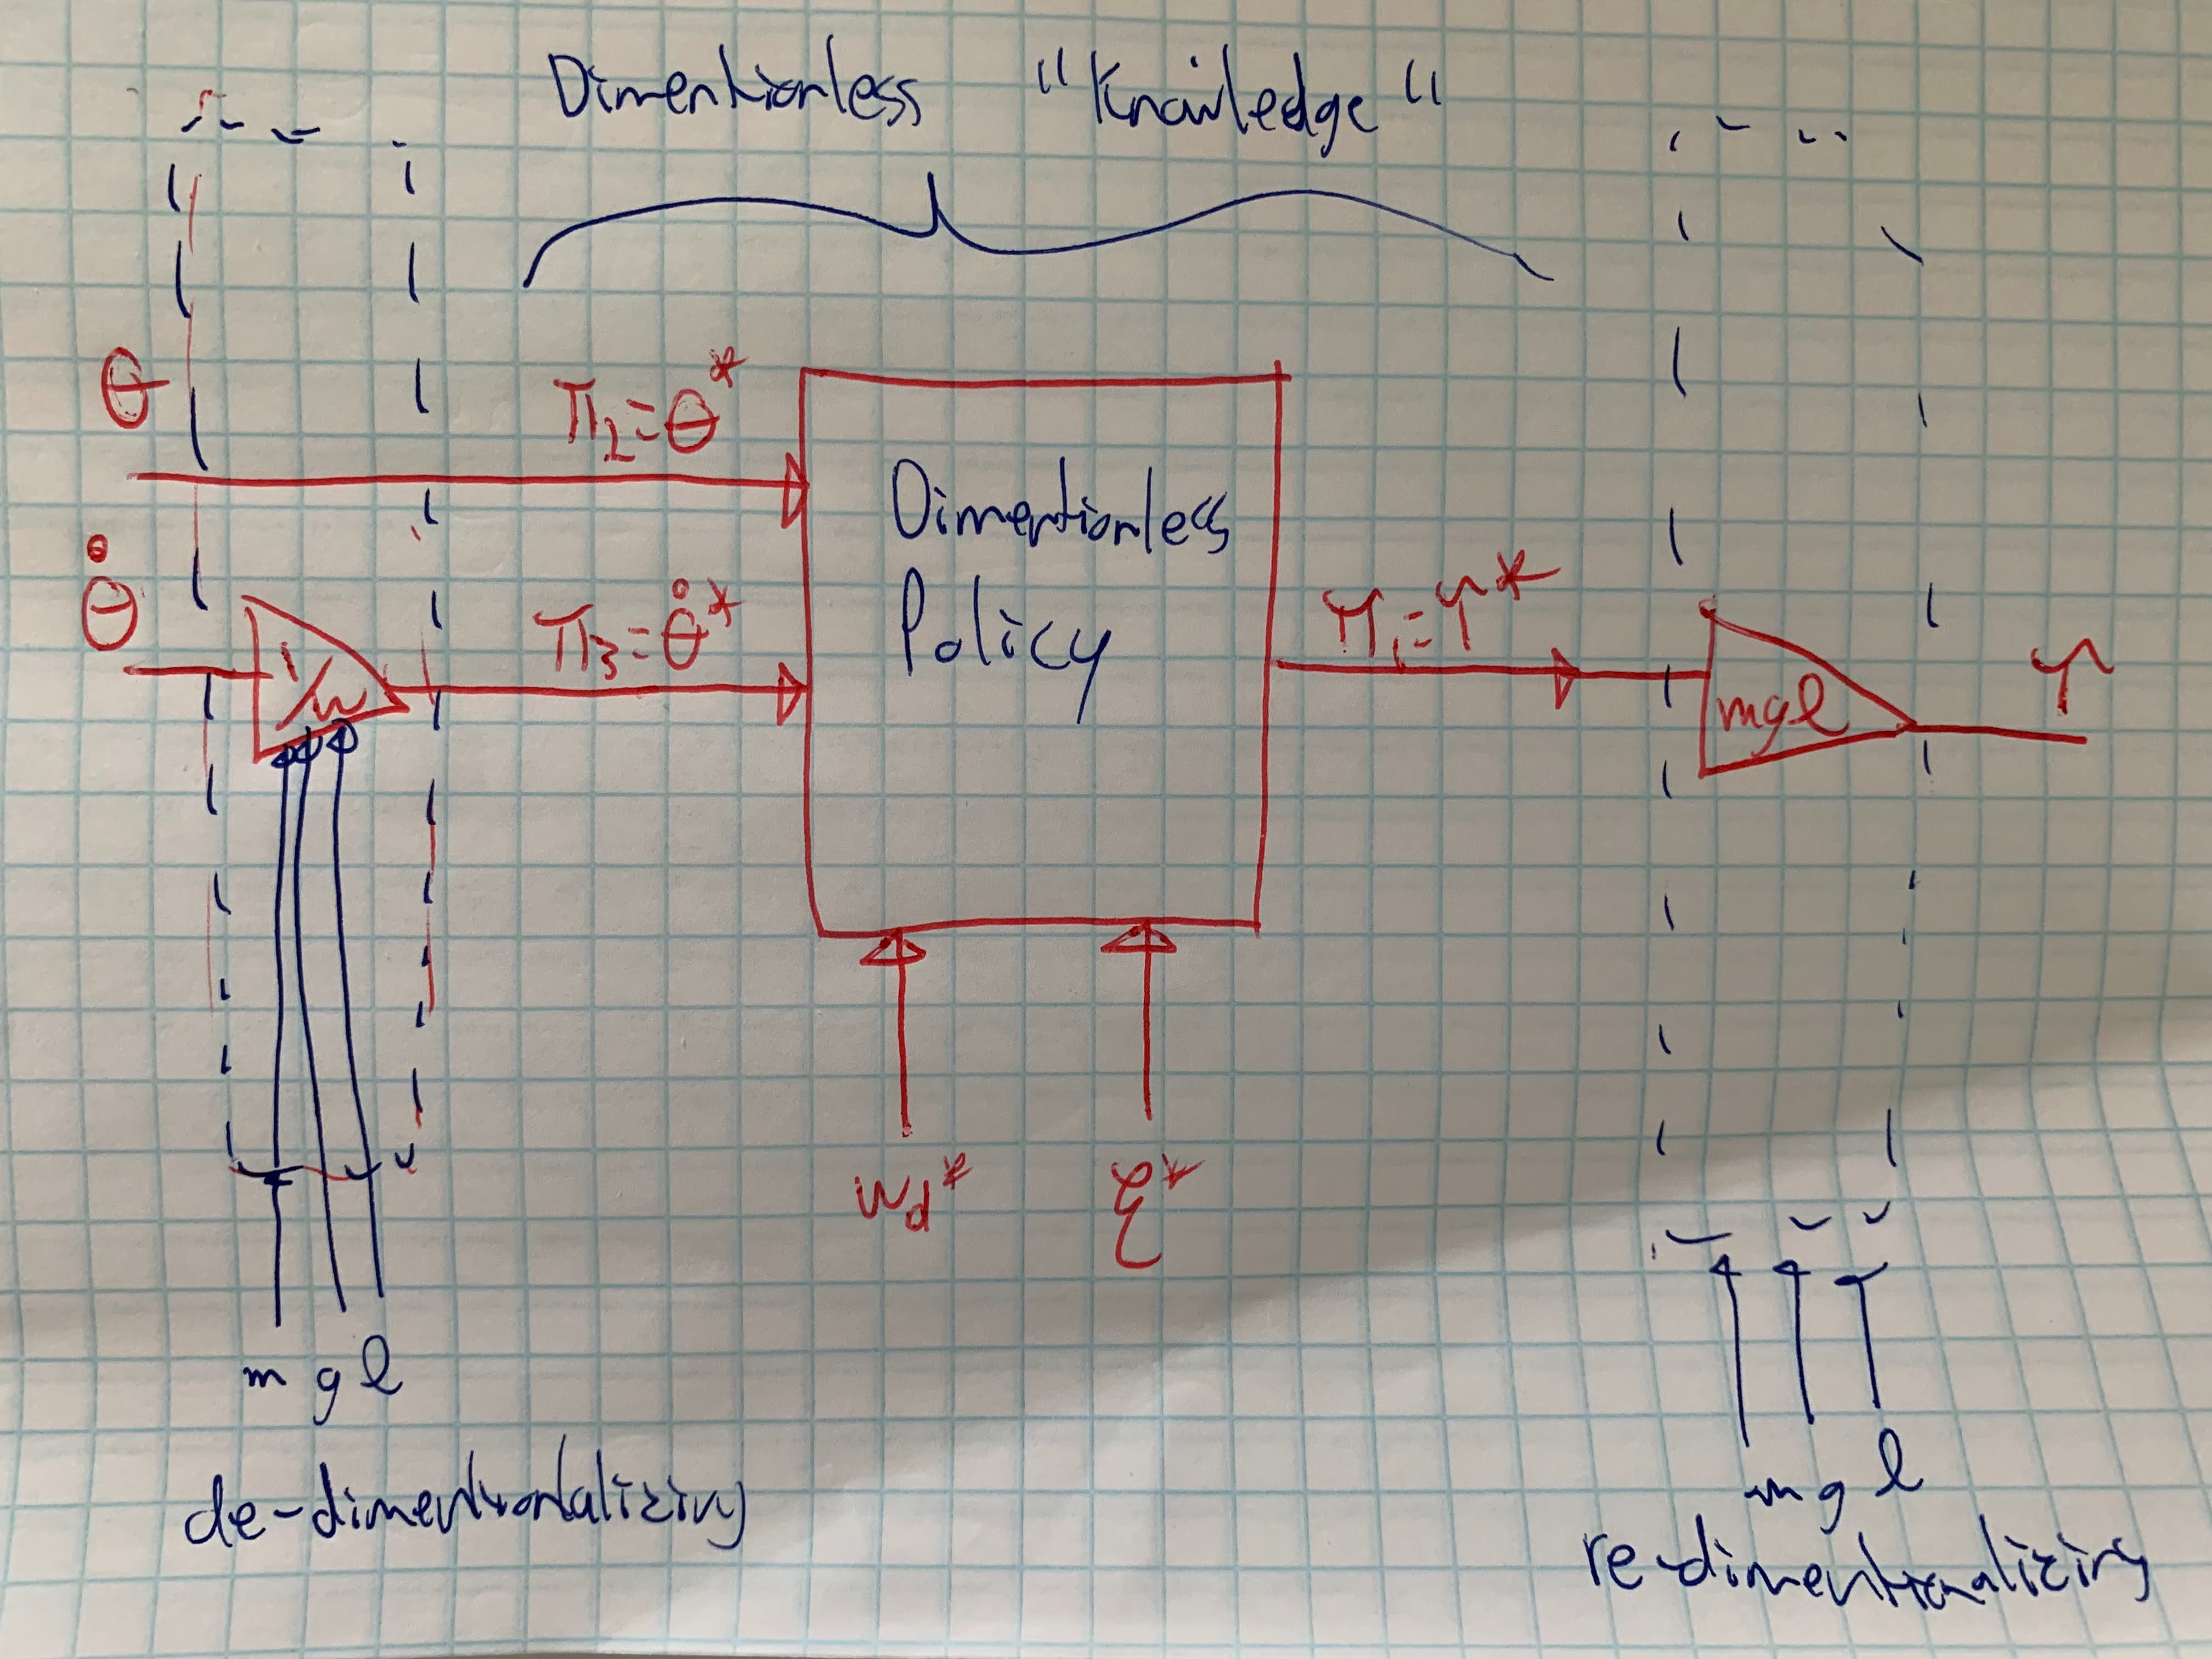 Dimentionless "Knowledge"
θ
π₂ = θ*
Dimentionless
Policy
θ̇
1/w
π₃ = θ̇*
π₁ = τ*
mgl
τ
wd*
ξ*
m g l
de-dimentionalizing
m g l
re-dimentionalizing